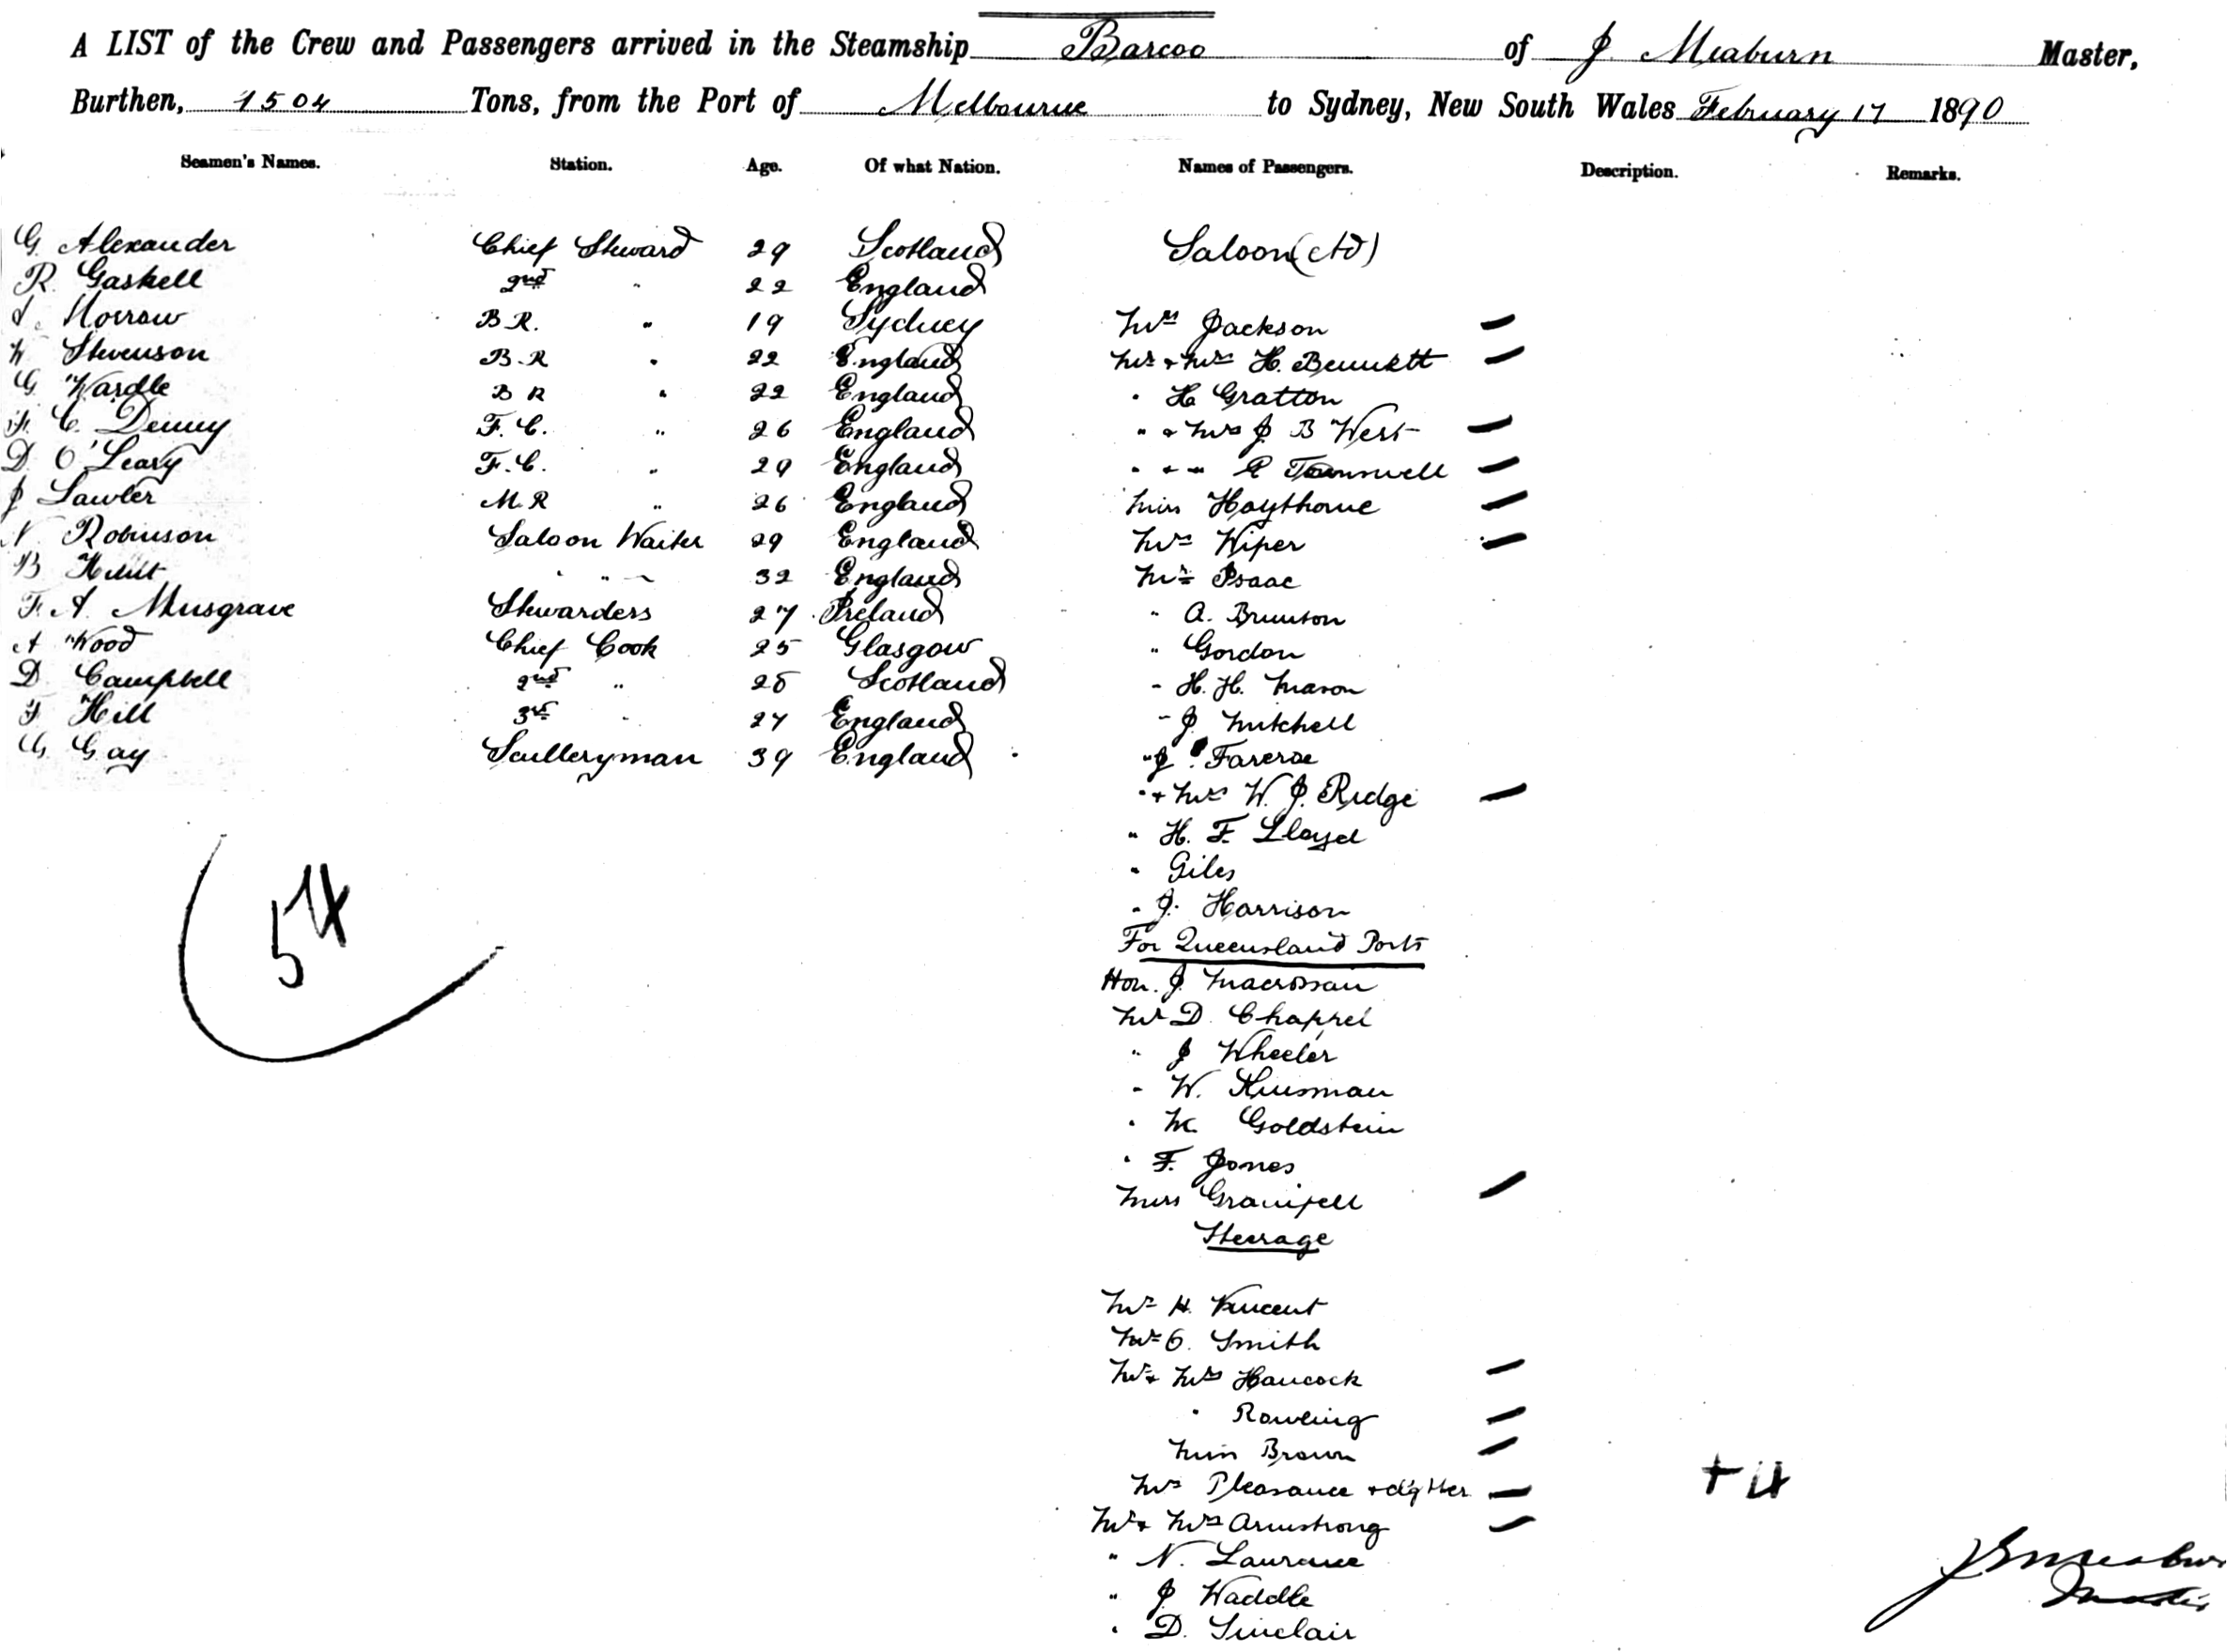 A LIST of the Crew and Passengers arrived in the Steamship Barcoo of J. Meaburn Master,
Burthen, 1504 Tons, from the Port of Melbourne to Sydney, New South Wales February 17 1890
Seamen's Names. Station. Age. Of what Nation. Names of Passengers. Description. Remarks.
G. Alexander Chief Steward 29 Scotland Saloon
R. Gaskell 2nd " 22 England
Morrow B.R. " 19 Sydney Mrs Jackson
W Stevenson B.R " 22 England Mr + Mrs H. Bennett
G Wardle B R " 22 England " H Gratton
F. C. Denny F. C. " 26 England " + Mrs J B West
D. O'Leary F. C. " 29 England " + "
J Lawler M.R " 26 England Miss Haythorne
N Robinson Saloon Waiter 29 England Mrs Wiper
B " " 32 England Mr Isaac
F. A. Musgrave Stewardess 27 Ireland " A. Brunton
A Wood Chief Cook 25 Glasgow " Gordon
D Campbell 2nd " Scotland " H. H. Mason
F Hill 3rd " 27 England " J. Mitchell
G Gay Sculleryman 39 England " J
" + Mrs W. J. Ridge
" H. F. Lloyd
" Giles
" J. Harrison
For Queensland Ports
Hon. J. Macrossan
Mr D. Chappel
" J Wheeler
" W. Kinsman
" Goldstein
" F. Jones
Miss
Steerage
Mr H. Vincent
Mr O. Smith
Mr + Mrs Hancock
" Rowling
Miss Brown
Mrs Pleasance + dghter
Mr + Mrs Armstrong
" N. Laurance
" J Waddle
" D. Sinclair
54
+ 4
J Meaburn
Master